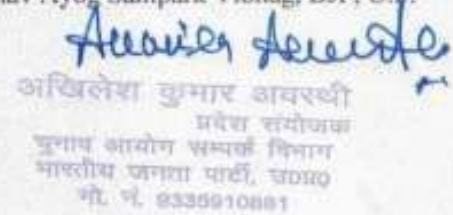 Ayog Sampark Vibhag, BJP, U.P.
अखिलेश कुमार अवस्थी
प्रदेश संयोजक
चुनाव आयोग सम्पर्क विभाग
भारतीय जनता पार्टी, उ०प्र०
मो. नं. 9335910881